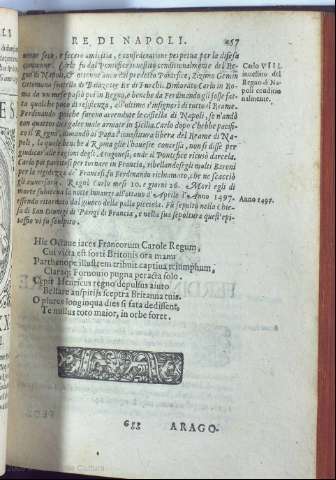 RE DI NAPOLI. 257
mente seco, e fecero amicitia, e confederatione perpetua per la difesa
commune. Carlo fu dal Pontefice inuestito conditionalmente del Re-
gno di Napoli, & ottenne anco dal predetto Pontefice, Zizimo Gemin
Ottomano fratello di Baiazette Re de Turchi. Dimorato Carlo in Ro-
ma da un mese passò poi in Regno, e benche da Ferdinando gli fosse fat-
ta qualche poco di resistenza, all'ultimo s'insignorì di tutto'l Reame.
Ferdinando poiche furono arrendute le castella di Napoli, se n'andò
con quattordeci galee male armate in Sicilia. Carlo dopo c'hebbe pacifi-
co il Regno, dimandò al Papa l'inuestitura libera del Reame di Napo-
li, la quale benche à Roma gli l'hauesse concessa, non si disse pre-
giudicar alle ragioni degli Aragonesi, onde il Pontefice ricusò darcela.
Carlo poi partitosi per tornare in Francia, ribellandosegli molti Baroni
per la rigidezza de' Francesi, fu Ferdinando richiamato, che ne scacciò
gli auersarij. Regnò Carlo mesi 10. e giorni 26. Morì egli di
morte subitanea la notte innanzi all'ottauo d'Aprile l'Anno 1497.
essendo ritornato dal giuoco della palla picciola. Fù sepolto nella chie-
sa di San Dionigi di Parigi di Francia, e nella sua sepoltura quest'epi-
taffio vi fù scolpito.
Carlo VIII.
inuestito del
Regno di Na-
poli conditio
nalmente.
Anno 1497.
Hic Octaue iaces Francorum Carole Regum,
Cui victa est forti Britonis ora manu
Parthenope illustrem tribuit captiua triumphum,
Claraq; Fornouio pugna peracta solo.
Cepit Henricus regno depulsus auito
Bellare auspitijs sceptra Britanna tuis.
O plures longinqua dies si fata dedissent,
Te nullus toto maior, in orbe foret.
ARAGO-